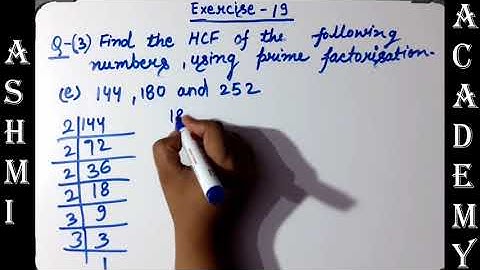 Exercise-19
Q-(3) Find the HCF of the following
numbers, using prime factorisation.
(e) 144, 180 and 252
2 144
2 72
2 36
2 18
3 9
3 3
1
18
ASHMI
ACADEMY